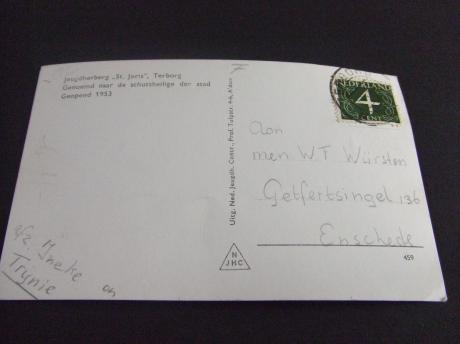 Jeugdherberg „St. Joris", Terborg
Genoemd naar de schutsheilige der stad
Geopend 1953
Uitg. Ned. Jeugdh. Centr., Prof. Tulpstr. 4-6, A'dam
NEDERLAND
4
CENT
Aan
men WT Würsten
Getfertsingel 136
Enschede
afz. Ineke
Trynie
N
JHC
459